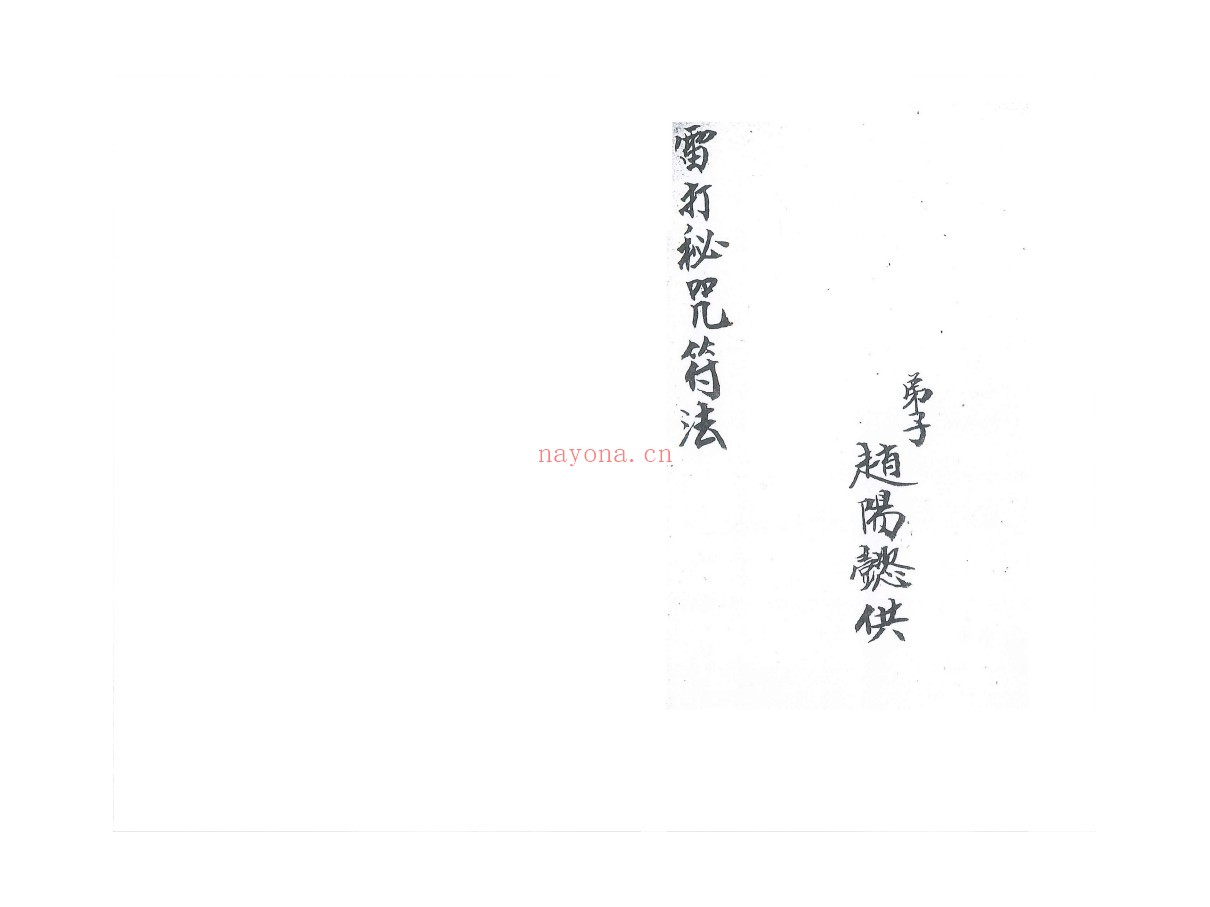 弟子
趙陽懿供
雷打秘咒符法
nayona.cn